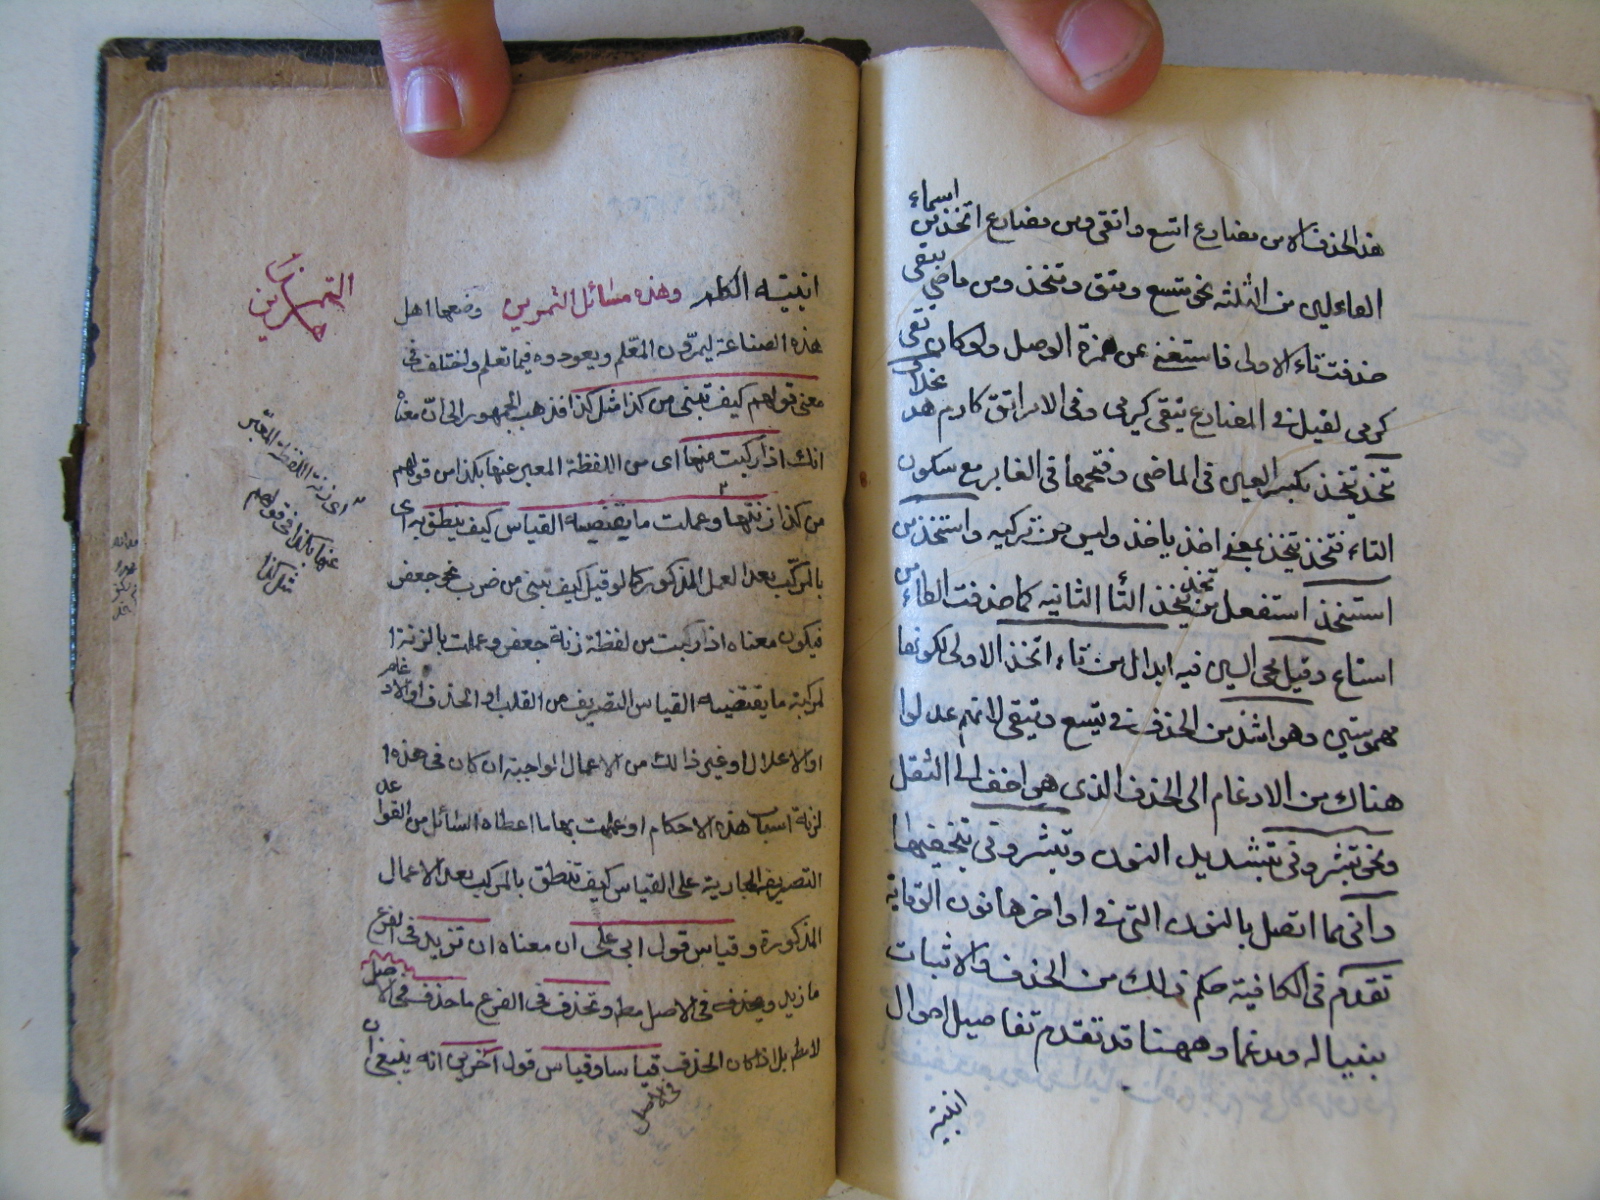 هذا الحذف الا من مضارع اتسع واتقى ومن مضارع اتخذ من اسماء
الفاعلين من الثلثة نحو متسع ومتق ومتخذ ومن ماضى يتقى
حذفت تاء الاولى فاستغنى عن همزة الوصل ولو كان تقى
كرمى لقيل فى المضارع يتقى كيرمى وفى الامر اتق كارم هذا
تخذ يتخذ بكسر العين فى الماضى وفتحها فى الغابر مع سكون
التاء فتخذ يتخذ بمعنى اخذ ياخذ وليس من تركيبه واستخذ من
استتخذ استفعل من تخذ يتخذ التا الثانيه كما حذفت الطاء من
استاع وقيل هى السين فيه ابدال من تاء اتخذ الاولى لكونهما
مهموستين وهو اشذ من الحذف فى يتسع ويتقى لانهم عدلوا
هناك من الادغام الى الحذف الذى هى اخف الى الثقل
ونحو تبشرونى بتشديد النون وتبشرونى بتخفيفها
وانى مما اتصل بالنون التى فى اواخرها نون الوقاية
تقدم فى الكافية حكم ذلك من الحذف والاثبات
بنيانه ومدغما وههنا قد تقدم تفاصيل احوال
ابنية
ابنيته الكلم وهذه مسائل التمرين وضعها اهل
هذه الصناعة ليمرون المتعلم ويعودوه فيما تعلم واختلف فى
معنى قولهم كيف تبنى من كذا مثل كذا فذهب الجمهور الى ان معناه
انك اذا ركبت منها اى من اللفظة المعبر عنها بكذا من قولهم
من كذا زنتها وعملت ما يقتضيه القياس كيف ينطق به اى
بالمركب بعد العمل المذكور كما لو قيل كيف يبنى من ضرب نحو جعفر
فيكون معناه اذا ركبت من لفظة زنة جعفر وعملت بالزنة ا
لمركبة ما يقتضيه القياس التصريف من القلب او الحذف او الادغام
او الاعلال او غير ذالك من الاعمال الواجبة ان كان فى هذه ا
لزنة اسباب هذه الاحكام او عملت بها ما اعطاه السائل من القواعد
التصريف الجارية على القياس كيف تنطق بالمركب بعد الاعمال
المذكورة وقياس قول ابى على ان معناه ان تزيد فى الفرع
ما زيد ويحذف فى الاصل مطم وتحذف فى الفرع ما حذف فى الاصل
لا مطم بل اذا كان الحذف قياسا وقياس قول آخرين انه ينبغى ان
فى الاصل
التمرين
اى زنة اللفظة المعبر
عنها بكذا فى قولهم
مثل كذا